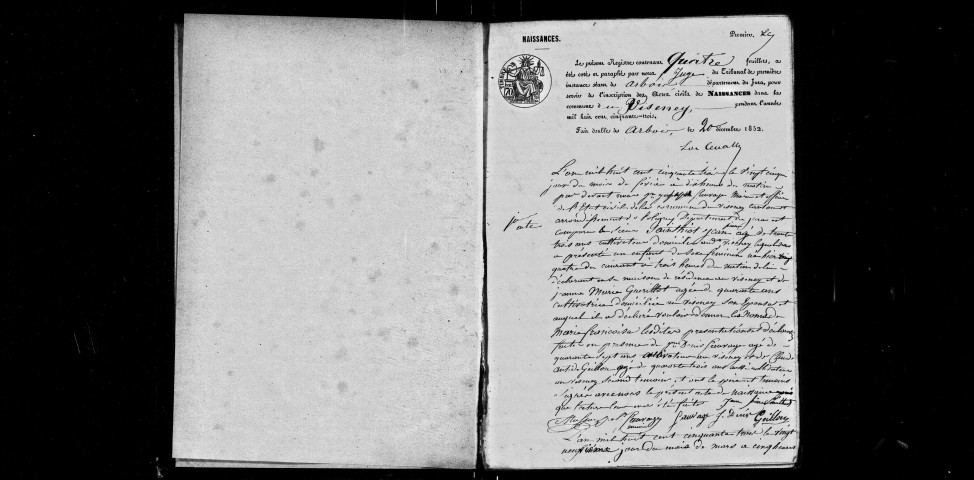 NAISSANCES.
Premier
Le présent Registre contenant Quatre feuillets, a
été coté et paraphé par nous Juge du Tribunal de première
instance séant de arbois département du Jura, pour
servir de l'inscription des Actes civils de NAISSANCES dans la
commune de Viseney, pendant l'année
mil huit cent cinquante-trois.
Fait double à Arbois le 20 décembre 1852.
L'an mil huit cent cinquante trois le vingt cinq
jour du mois de février à dix heures du matin
par devant nous Sauvage Maire et officier
de l'Etat civil de la commune de viseney canton
arrondissement de Poligny Département du jura est
comparu le sieur jean agé de trente
trois ans cultivateur domicilié au dit viseney lequel
a présenté un enfant du sexe féminin né hier vingt
quatre du courant à trois heures du matin de lui
déclarant en sa maison de résidence au viseney et de
jeanne Marie Guérillot agée de quarante ans
cultivatrice domiciliée au viseney son épouse et
auquel il a déclaré vouloir donner les noms de
Marie francoise les dites présentation et déclaration
faite en présence de Denis Sauvage agé de
quarante sept ans cultivateur au viseney et de Claude
Guillon agé de quarante trois ans aussi cultivateur
au viseney second temoin, et ont le dit temoins
signé avec nous le présent acte de naissance après
que lecture leur en a été faite
Sauvage Guillon
L'an mil huit cent cinquante trois le vingt
neuvième jour du mois de mars a cinq heures